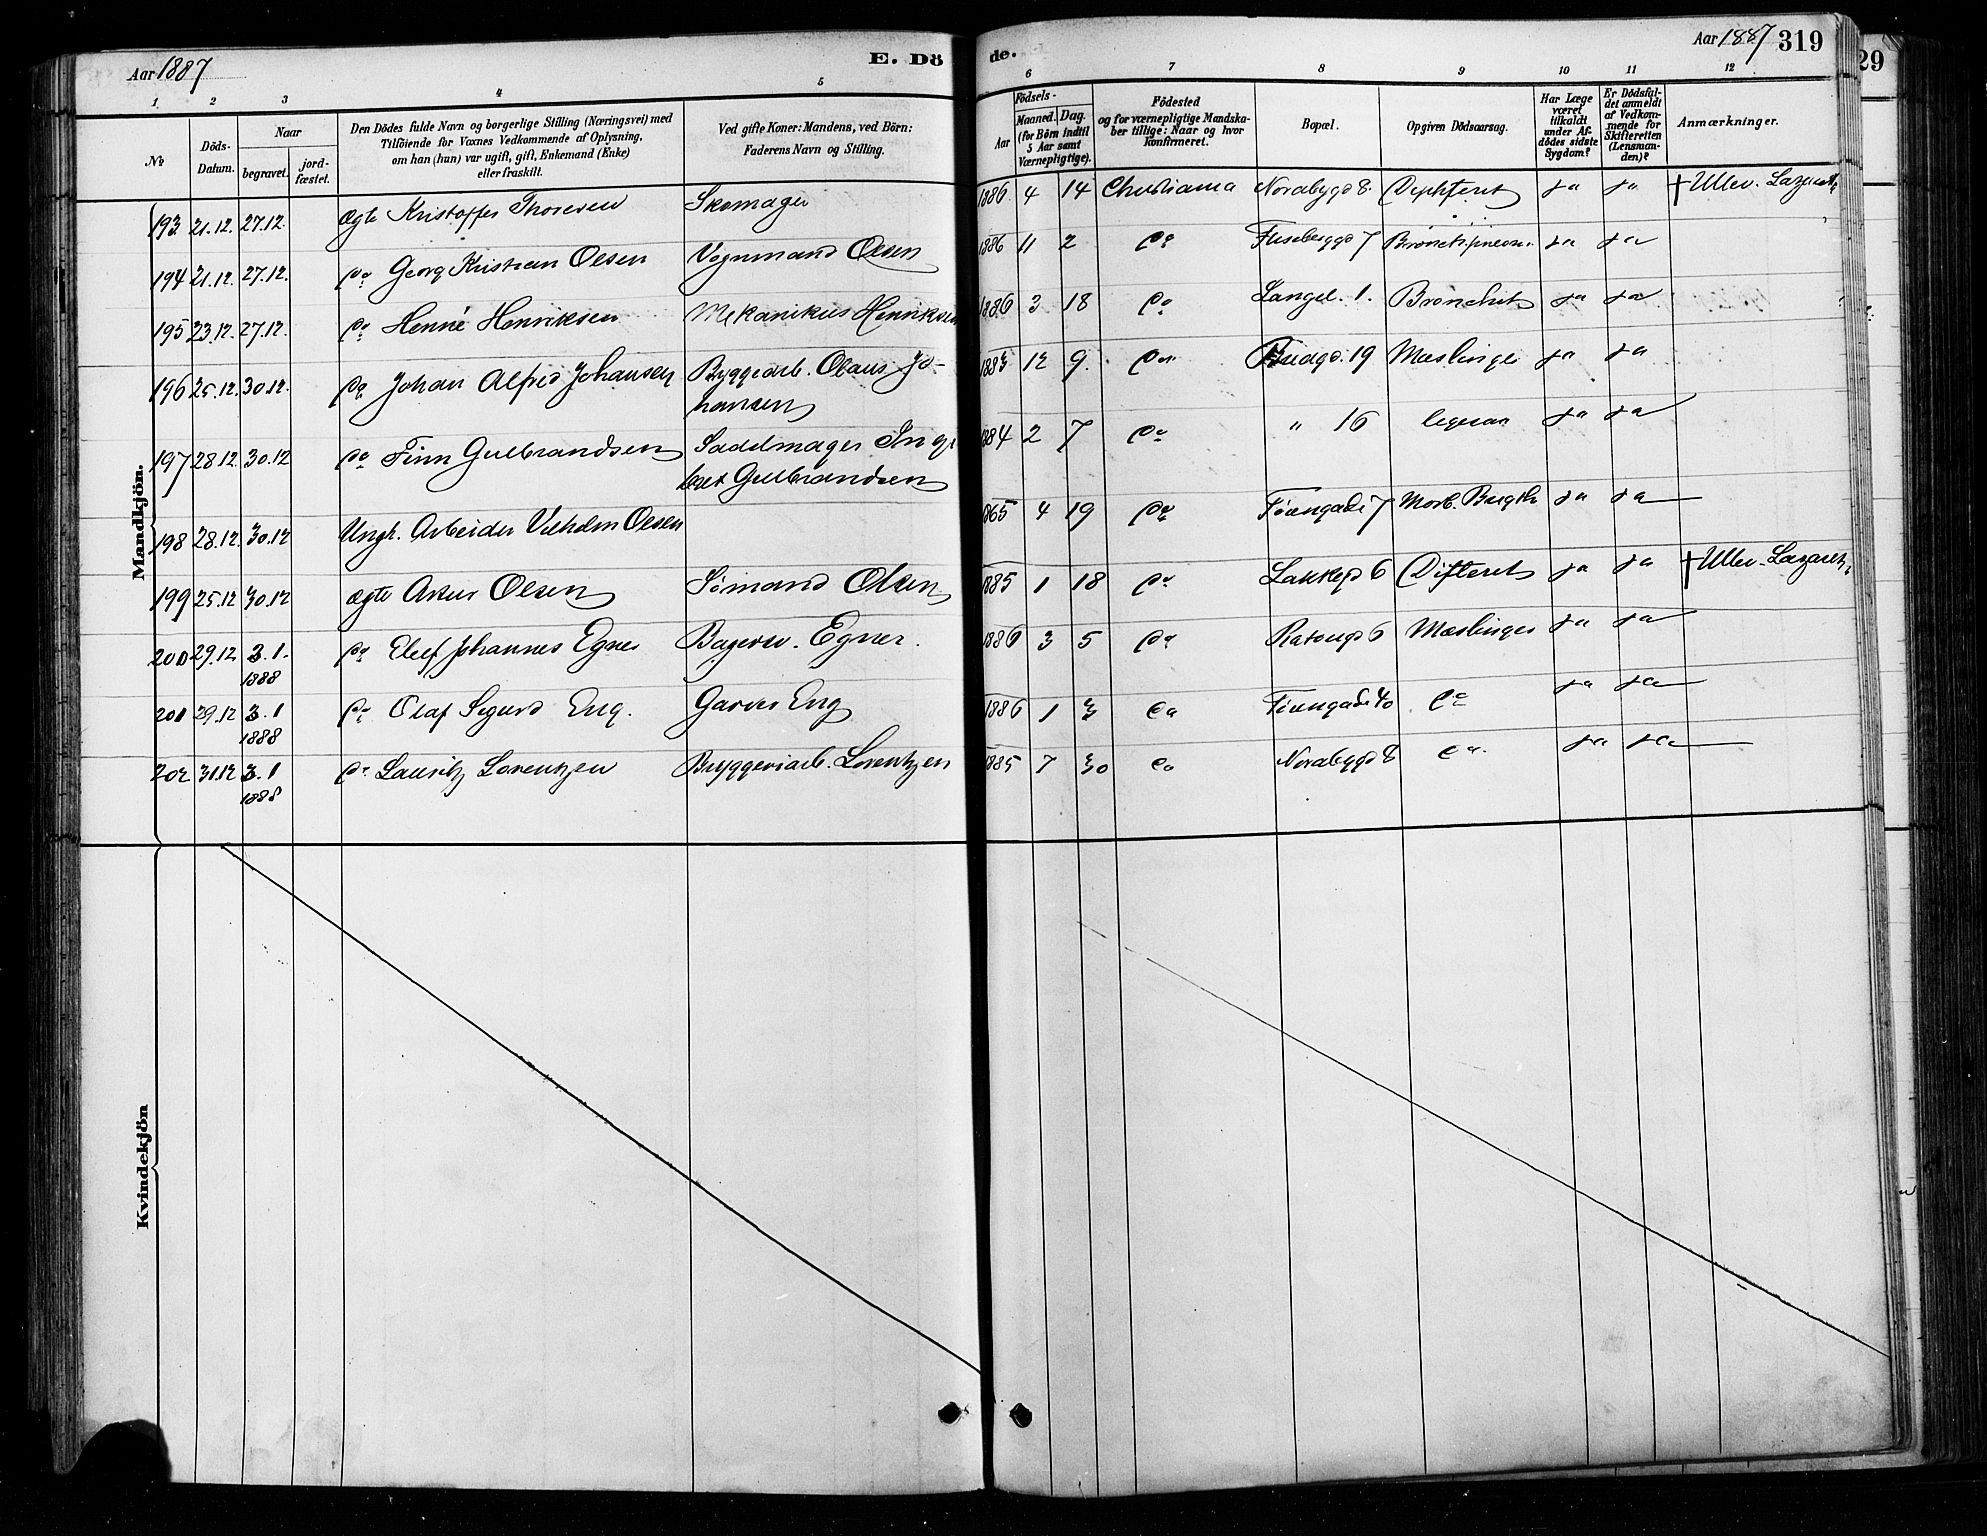 Aar 1887
E. Dö
de.
Aar 1887
319
29
1 2 3 4 5 6 7 8 9 10 11 12
No
Döds-
Datum.
Naar
begravet.
jord-
fæstet.
Den Dödes fulde Navn og borgerlige Stilling (Næringsvei) med
Tilföiende for Voxnes Vedkommende af Oplysning,
om han (hun) var ugift, gift, Enkemand (Enke)
eller fraskilt.
Ved gifte Koner: Mandens, ved Börn:
Faderens Navn og Stilling.
Födsels-
Aar
Maaned.
Dag.
(for Börn indtil
5 Aar samt
Værnepligtige).
Födested
og for værnepligtige Mandska-
ber tillige: Naar og hvor
konfirmeret.
Bopæl.
Opgiven Dödsaarsag.
Har Læge
været
tilkaldt
under Af-
dödes sidste
Sygdom?
Er Dödsfal-
det anmeldt
af Vedkom-
mende for
Skifteretten
(Lensman-
den)?
Anmærkninger.
Mandkjön.
193 21.12. 27.12. ægte Kristoffer Thoresen Skomager 1886 4 14 Christiania Nordbygd 8 Diphterit ja ja † Ullev. Lazareth
194 21.12. 27.12. do Georg Kristian Olsen Vognmand Olsen 1886 11 2 do 7 ja ja
195 23.12. 27.12. do Henrik Henriksen Mekanikus Henriksen 1886 3 18 do Langel. 1. Bronchit ja ja
196 25.12. 30.12. do Johan Alfred Johansen Byggearb. Olaus Jo-
hansen 1883 12 9 do 19 Mæslinger ja ja
197 28.12 30.12 do Finn Gulbrandsen Sadelmager Inge
bret Gulbrandsen 1884 2 7 do " 16 ligesaa ja ja
198 28.12. 30.12 Ungk. Arbeider Vilhelm Olsen 1865 4 19 do Töiengade 7 Morb. Brigth ja ja
199 25.12 30.12 ægte Olsen Sömand Olsen 1885 1 18 do Lakkegd 6 Difterit ja ja † Ullev. Lazareth
200 29.12 3.1.
1888 do Johannes Egner Bagersv. Egner. 1886 3 5 do 6 Mæslinger ja ja
201 29.12 3.1
1888 do Olaf Sigurd Eng. Garver Eng 1886 1 3 do Töiengade 40 do ja ja
202 31.12 3.1
1888 do Lauritz Lorentzen Bryggeriarb. Lorentzen 1885 7 30 do Nordbygd 8 do. ja ja
Kvindekjön